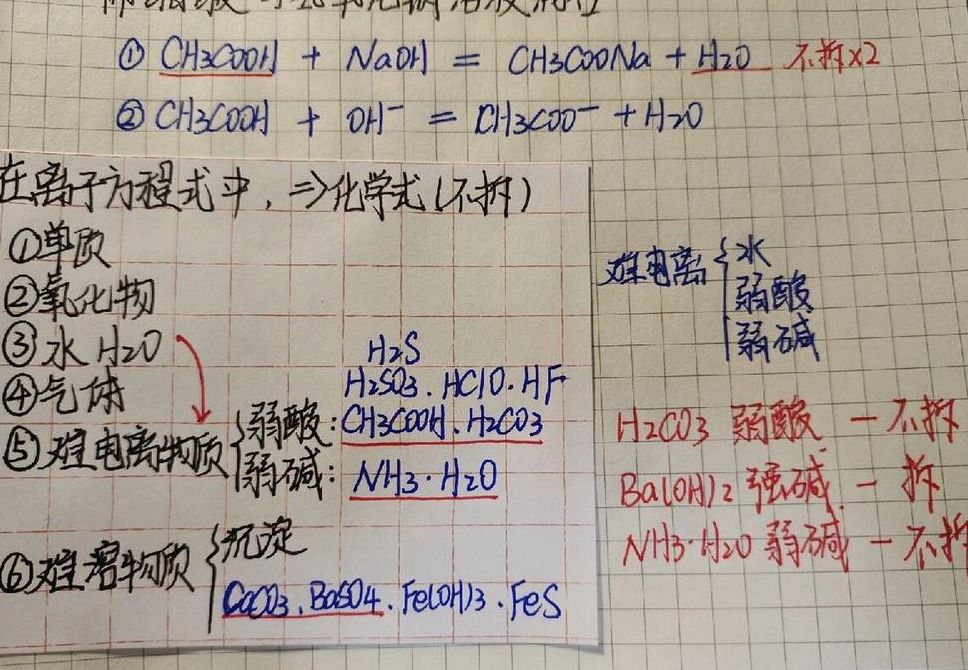 ① CH3COOH + NaOH = CH3COONa + H2O 不拆×2
② CH3COOH + OH⁻ = CH3COO⁻ + H2O
在离子方程式中，⇒化学式(不拆)
①单质
②氧化物
③水 H2O
④气体
⑤难电离物质
弱酸:
H2S
H2SO3 . HClO . HF
CH3COOH . H2CO3
弱碱: NH3·H2O
⑥难溶物质
沉淀
CaCO3 . BaSO4 . Fe(OH)3 . FeS
难电离
水
弱酸
弱碱
H2CO3 弱酸 — 不拆
Ba(OH)2 强碱 — 拆
NH3·H2O 弱碱 — 不拆